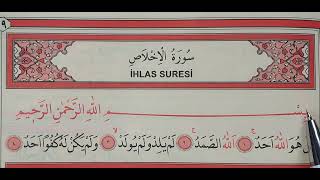 ٩
سُورَةُ الْاِخْلَاصِ
İHLAS SURESİ
بِسْمِ اللهِ الرَّحْمٰنِ الرَّحِيمِ
هُوَ اللهُ اَحَدٌ ۚ ﴿١﴾ اَللهُ الصَّمَدُ ۚ ﴿٢﴾ لَمْ يَلِدْ وَلَمْ يُولَدْ ۙ ﴿٣﴾ وَلَمْ يَكُنْ لَهُ كُفُوًا اَحَدٌ ﴿٤﴾